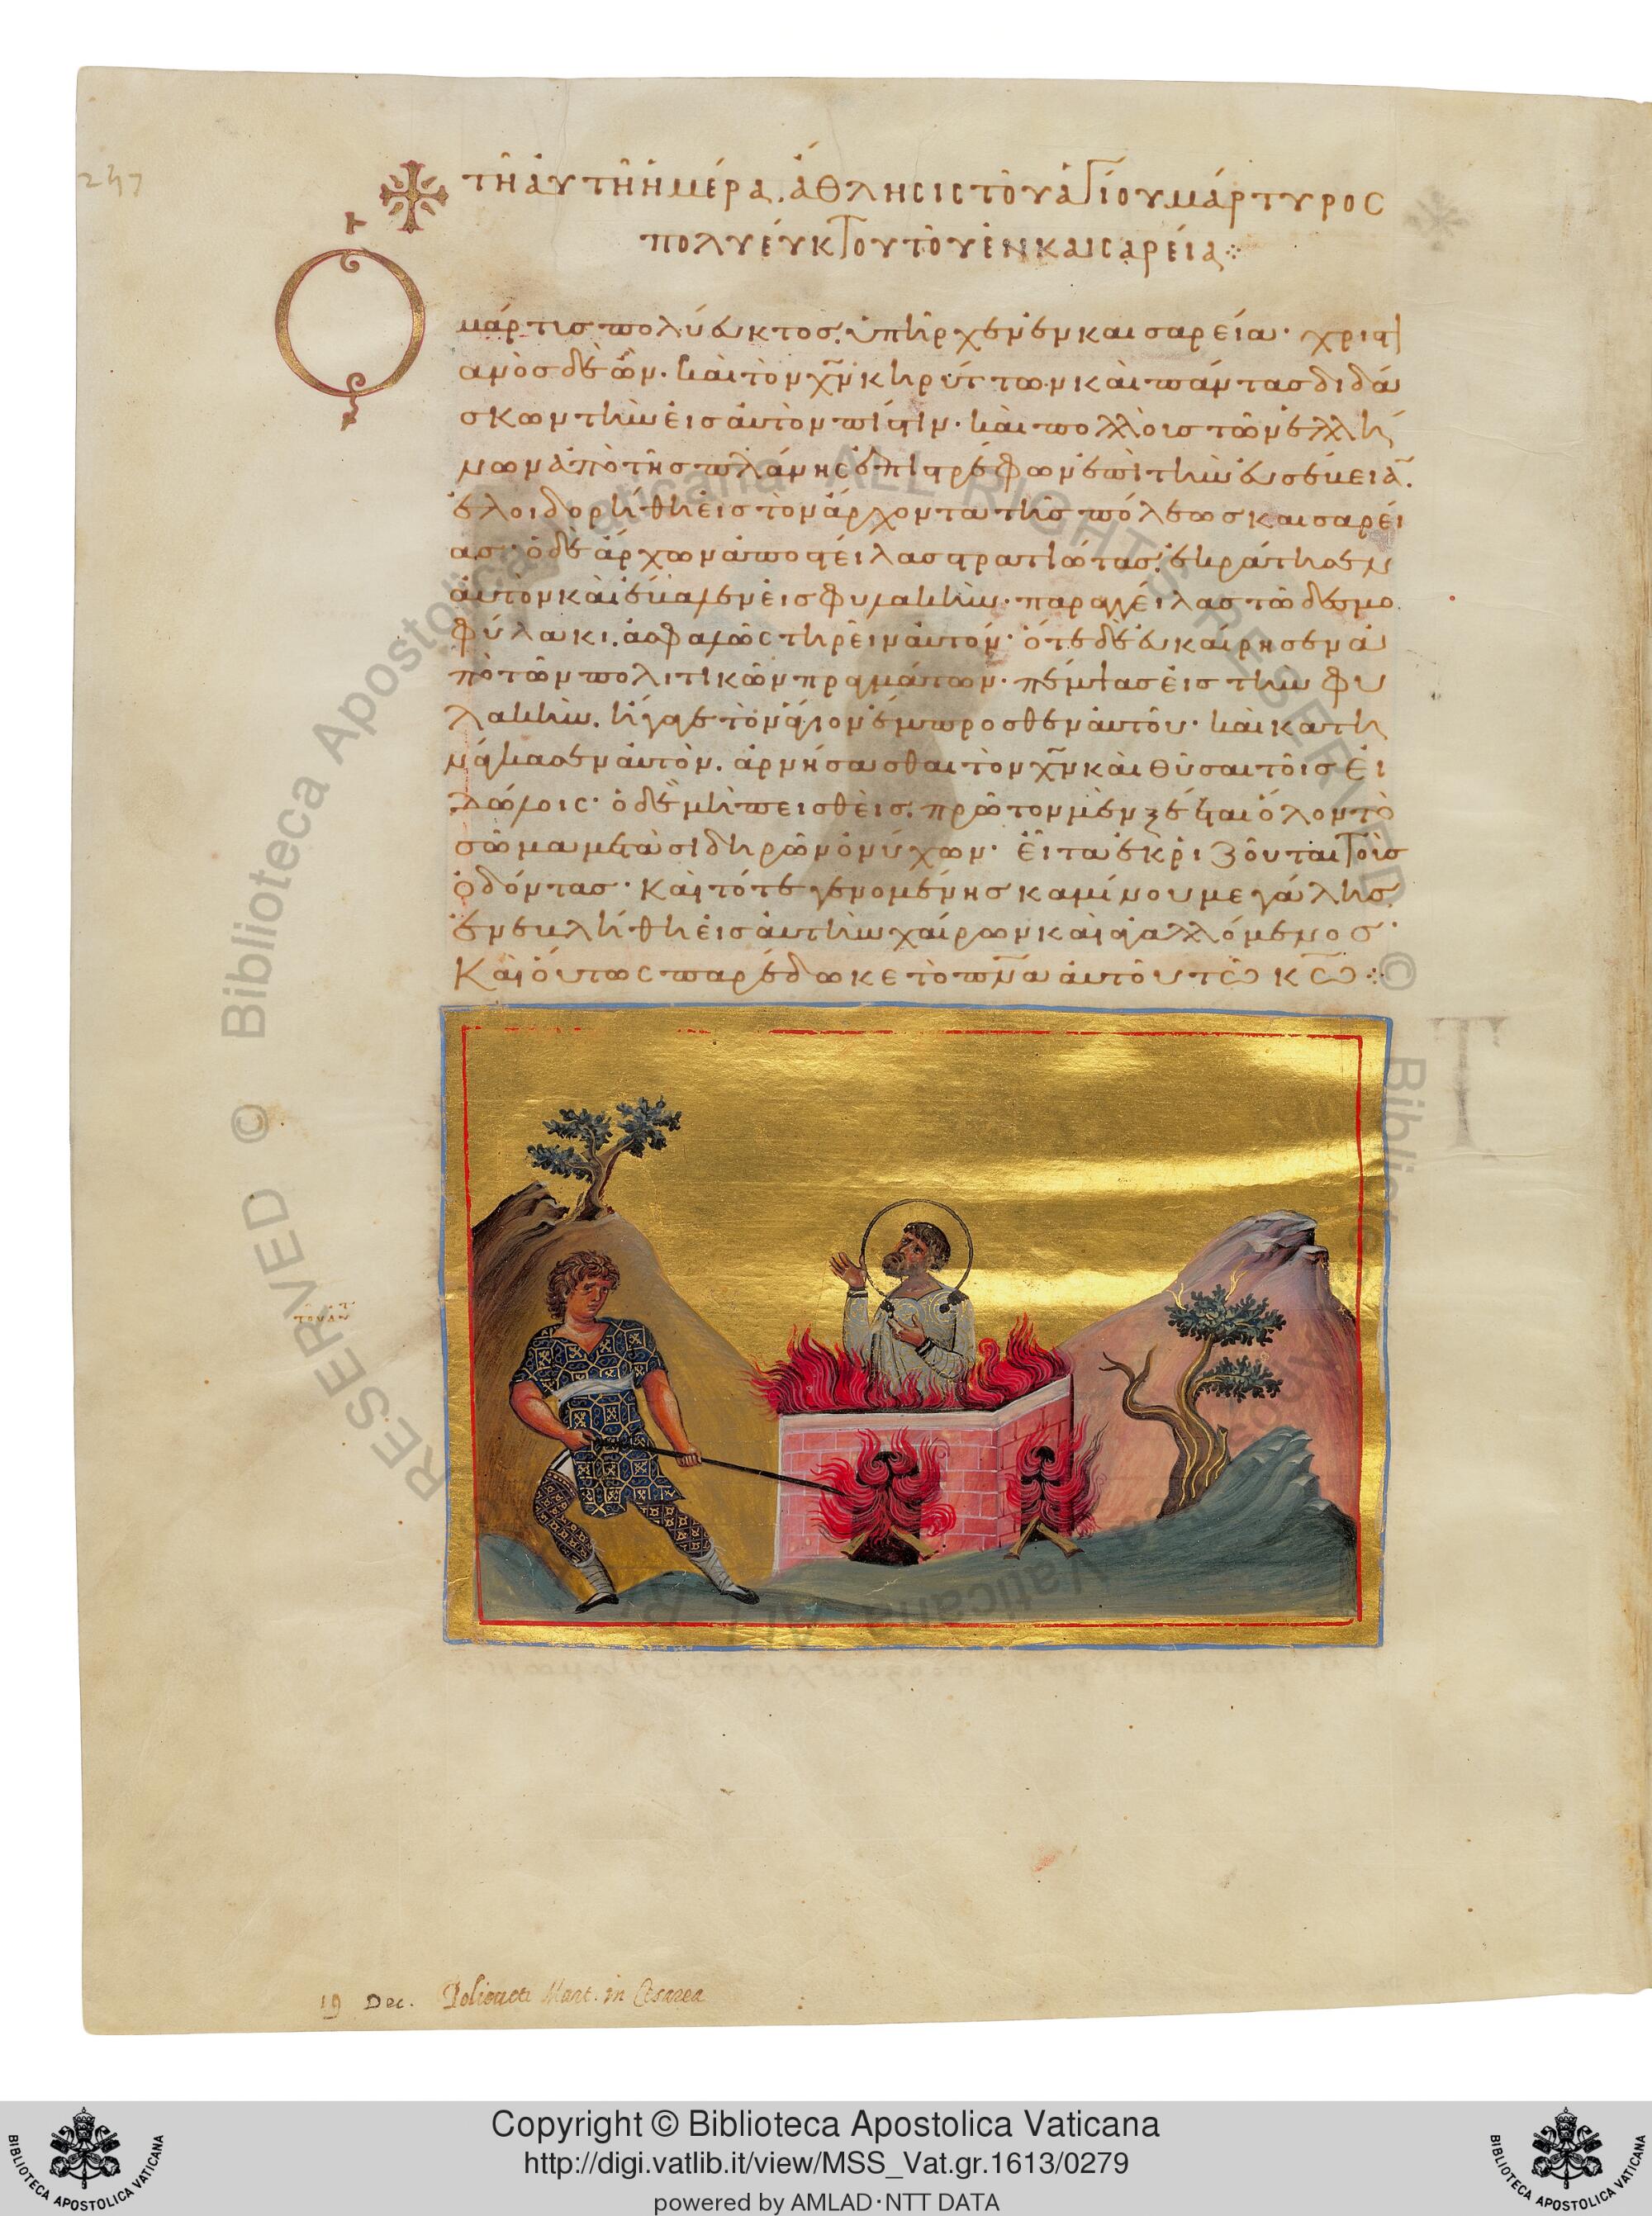 247
τῆ ἀυτῆ ἡμέρα. ἄθλησις τοῦ ἁγίου μάρτυρος
πολυέυκτου τοῦ ἐν καισαρεία
Ο
μάρτις πολύευκτος. ὑπῆρχεν ἐν καισαρεία· χριστι
ανὸς δὲ ὢν. καὶ τὸν χ̅ν̅ κηρύττων καὶ πάντας διδά
σκων τὴν εἰς ἀυτὸν πίστιν· καὶ πολλοὺς τῶν ἑλλή
νων ἀπὸ τῆς πλάνης ἐπιστρέφων ἐπὶ τὴν ἐυσέβεια̅.
ἐλοιδορήθη εἰς τὸν ἄρχοντα τῆς πόλεως καισαρεί
ας· ὁ δὲ ἄρχων ἀποστείλας στρατιώτας. ἐκράτησεν
ἀυτὸν καὶ ἔβαλεν εἰς φυλακὴν· παραγγείλας τῶ δεσμο
φύλακι. ἀσφαλῶς τηρεῖν ἀυτόν· ὅτε δὲ ἐυκαίρησεν ἀ
πὸ τῶν πολιτικῶν πραγμάτων· πέμψας εἰς τὴν φυ
λακὴν. ἤγαγε τὸν ἅγιον ἔμπροσθεν ἀυτοῦ· καὶ κατη
νάγκασεν ἀυτὸν. ἀρνήσασθαι τὸν χ̅ν̅ καὶ θῦσαι τοῖς εἰ
δώλοις· ὁ δὲ μὴ πεισθεὶς. πρῶτον μὲν ξέεται ὅλον τὸ
σῶμα μετὰ σιδηρῶν ὀνύχων· εἶτα ἐκριζοῦται τοὺς
ὀδόντας· καὶ τότε γενομένης καμίνου μεγάλης.
ἐνεβλήθη εἰς ἀυτὴν χαίρων καὶ ἀγαλλόμενος·
Καὶ ὅυτως παρέδωκε τὸ π̅ν̅α ἀυτοῦ τῶ κ̅ω̅
19 Dec. Polieucti Mart. in Cesarea
Biblioteca Apostolica Vaticana ALL RIGHTS RESERVED ©
Copyright © Biblioteca Apostolica Vaticana
http://digi.vatlib.it/view/MSS_Vat.gr.1613/0279
powered by AMLAD·NTT DATA
BIBLIOTECA APOSTOLICA VATICANA
BIBLIOTECA APOSTOLICA VATICANA